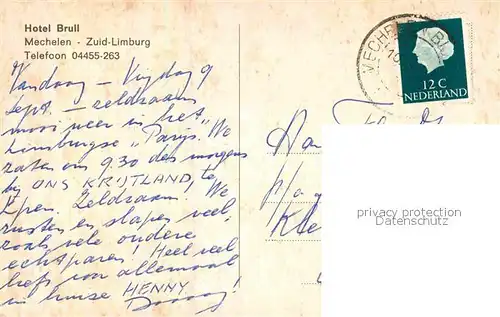 Hotel Brull
Mechelen - Zuid-Limburg
Telefoon 04455-263
Vandaag - Vrijdag 9
Sept. - zeldzaam
mooi weer in het
Limburgse "Parijs". We
zaten om 9.30 des morgens
bij ONS KRIJTLAND, te
Epen. Zeldzaam. We
rusten en slapen veel,
zoals vele oudere
echtparen! Heel veel
liefs voor allemaal
in huize HENNY.
12 C
NEDERLAND
privacy protection
Datenschutz